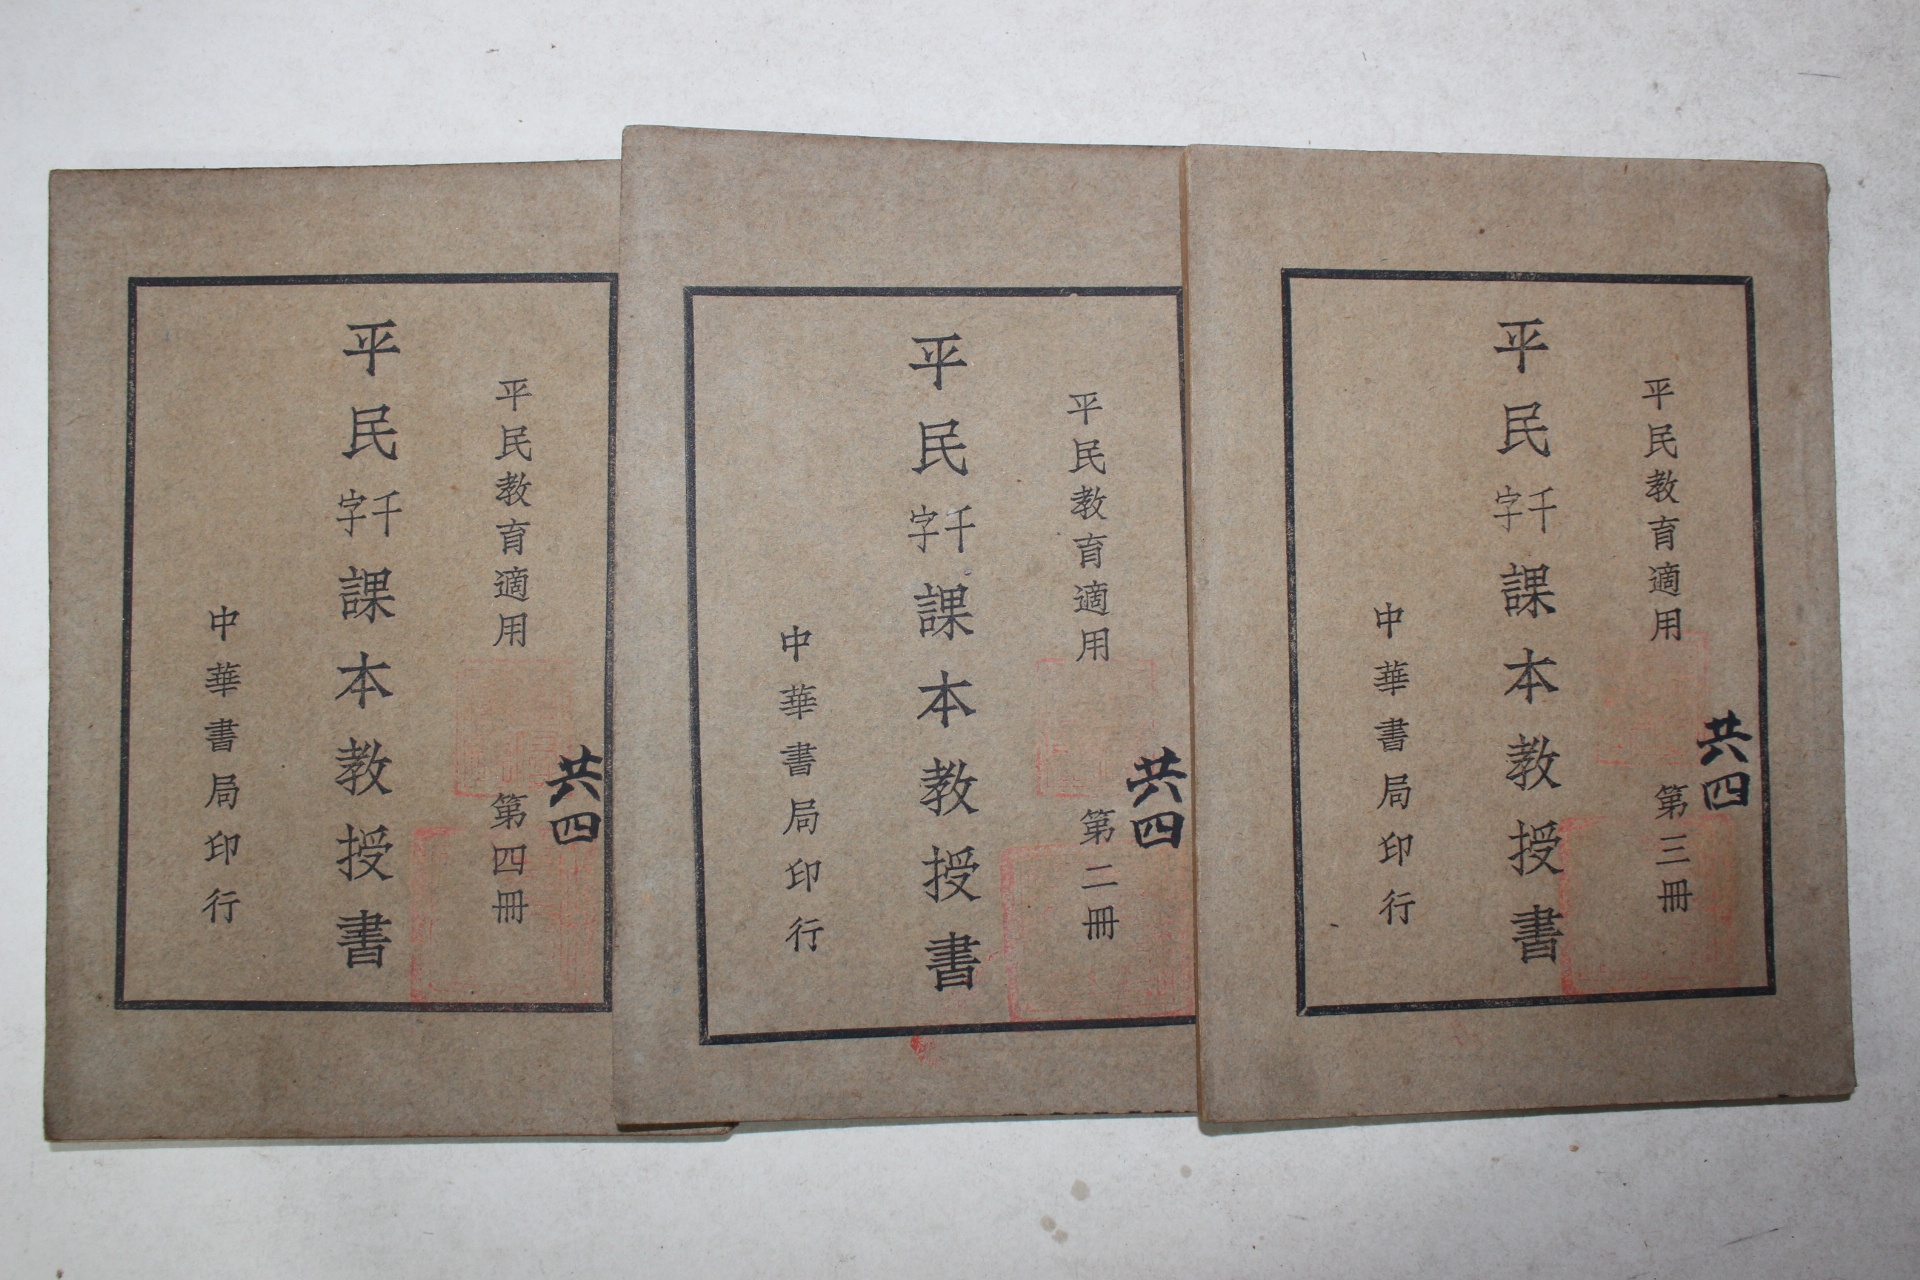 平民教育適用
第四冊
共四
平民千字課本教授書
中華書局印行
平民教育適用
第二冊
共四
平民千字課本教授書
中華書局印行
平民教育適用
第三冊
共四
平民千字課本教授書
中華書局印行